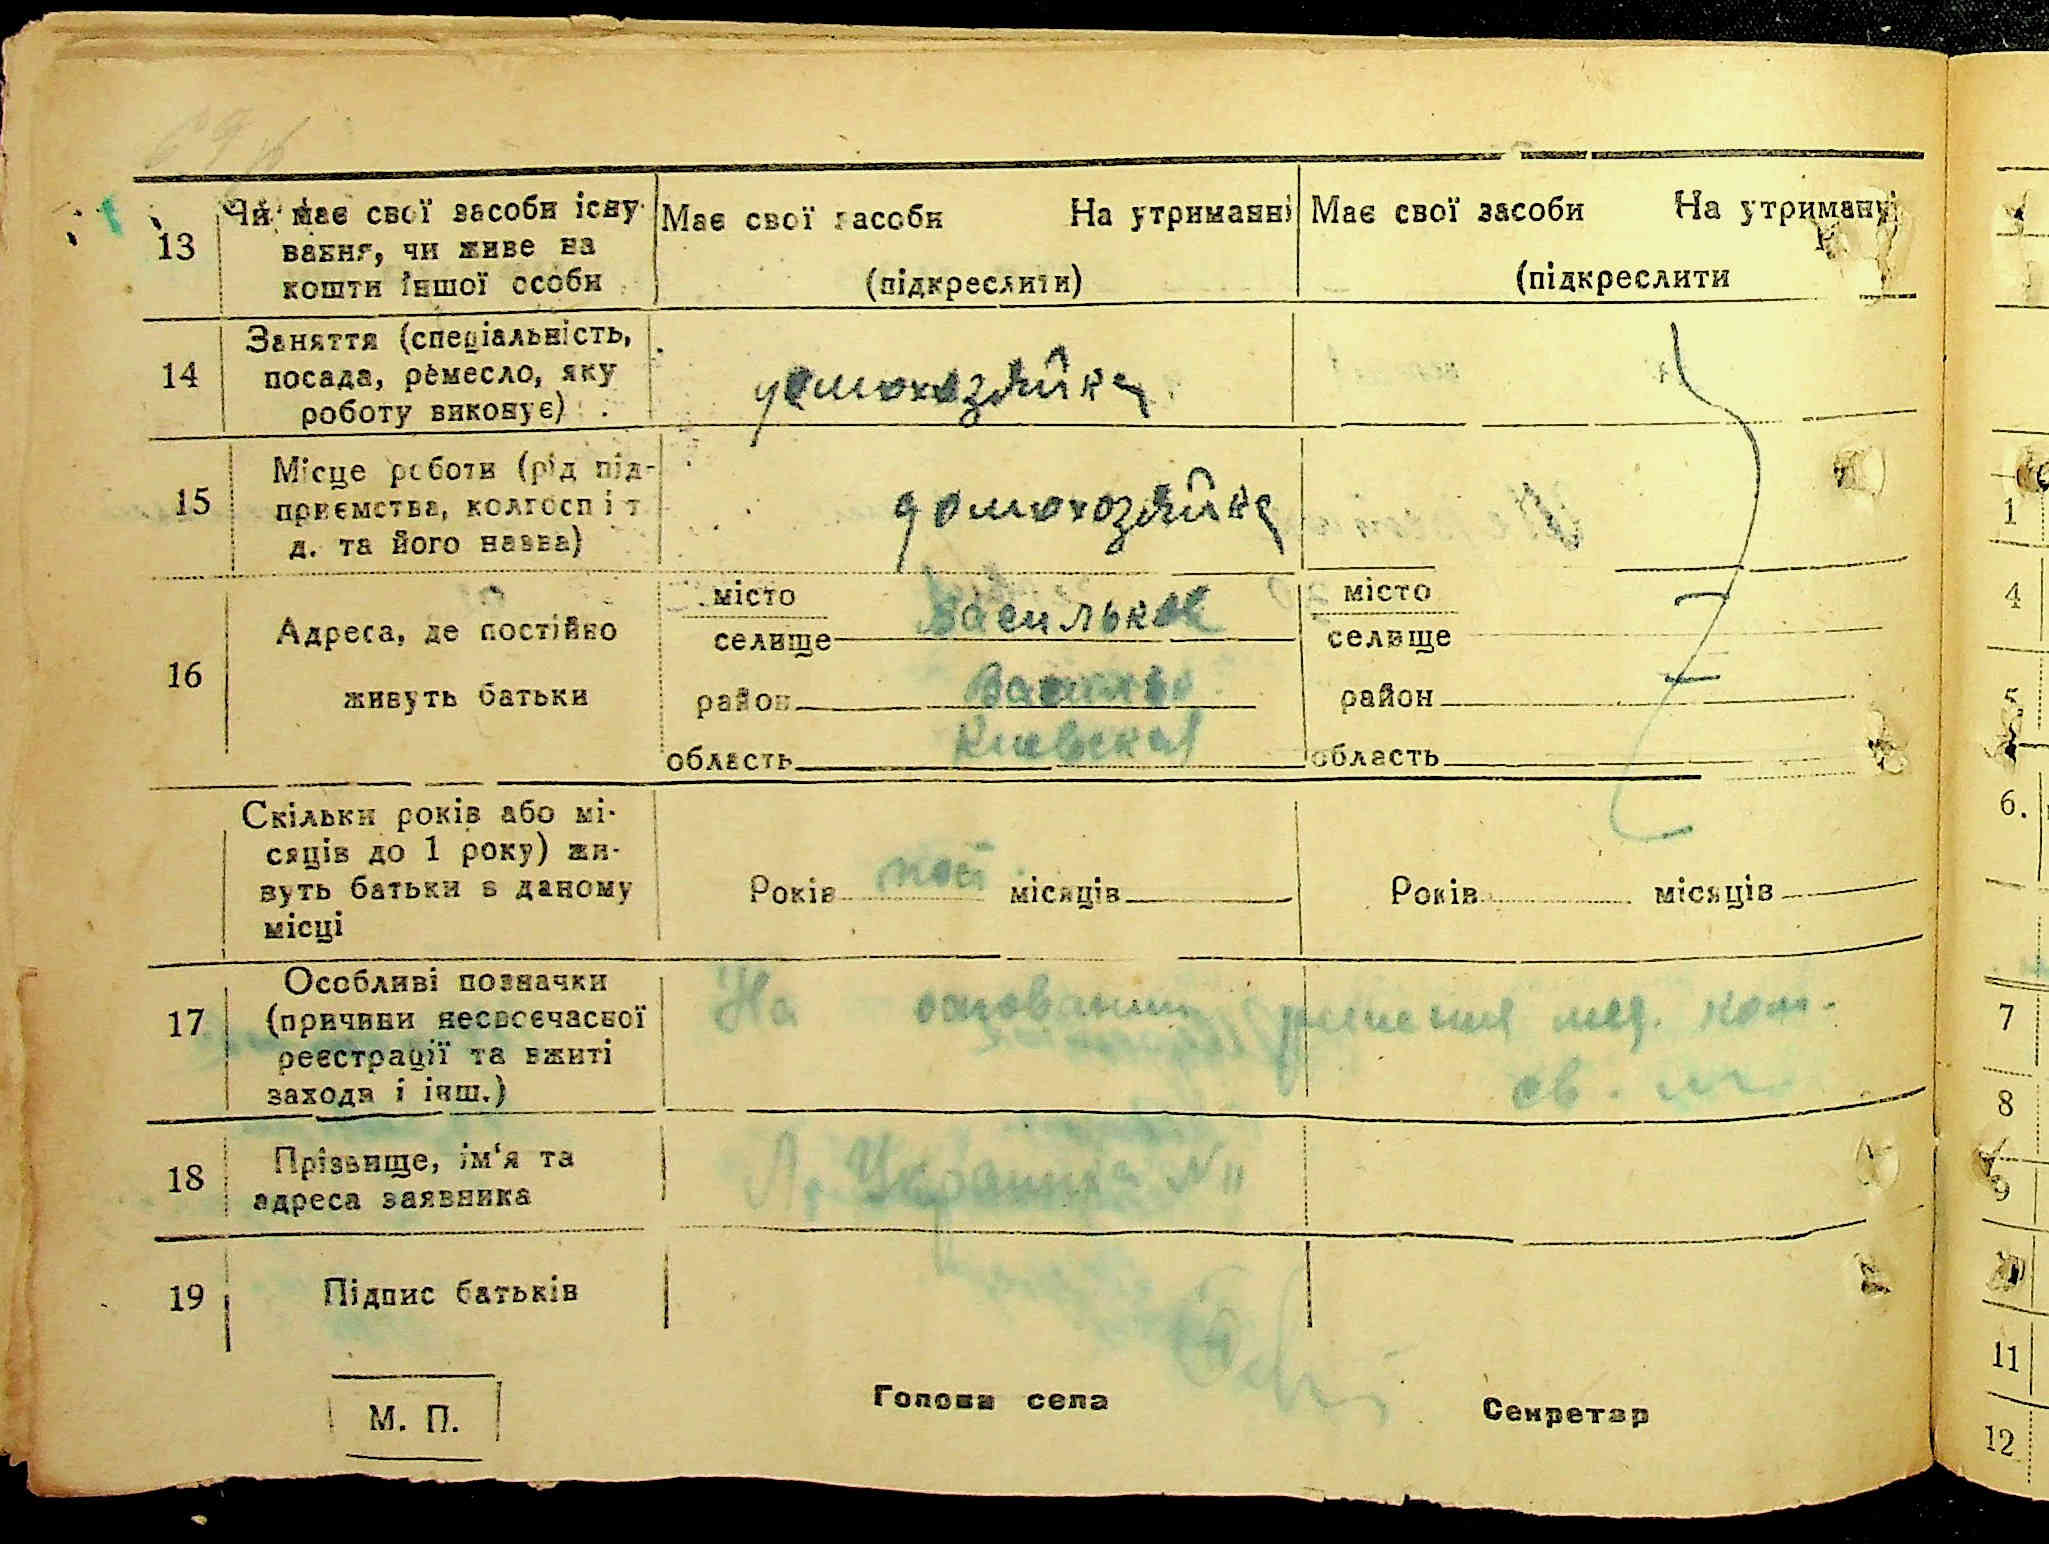 13 Чи має свої засоби існу- Має свої засоби На утриманні Має свої засоби На утриманні
вання, чи живе на
кошти іншої особи (підкреслити) (підкреслити
14 Заняття (спеціальність,
посада, ремесло, яку домохозяйка
роботу виконує)
15 Місце роботи (рід під-
приємства, колгосп і т домохозяйка
д. та його назва)
16 Адреса, де постійно
живуть батьки
місто місто
селище Васильков селище
район район
область Киевская область
Скільки років або мі-
сяців до 1 року) жи-
вуть батьки в даному Років пост місяців Років місяців
місці
17 Особливі позначки
(причини несвоєчасної На основании решения мед. ком.
реєстрації та вжиті
заходи і інш.) св.
18 Прізвище, ім‘я та Л. Украинка № 11
адреса заявника
19 Підпис батьків
М. П. Голова села Секретар
1
4
5
6.
7
8
9
11
12